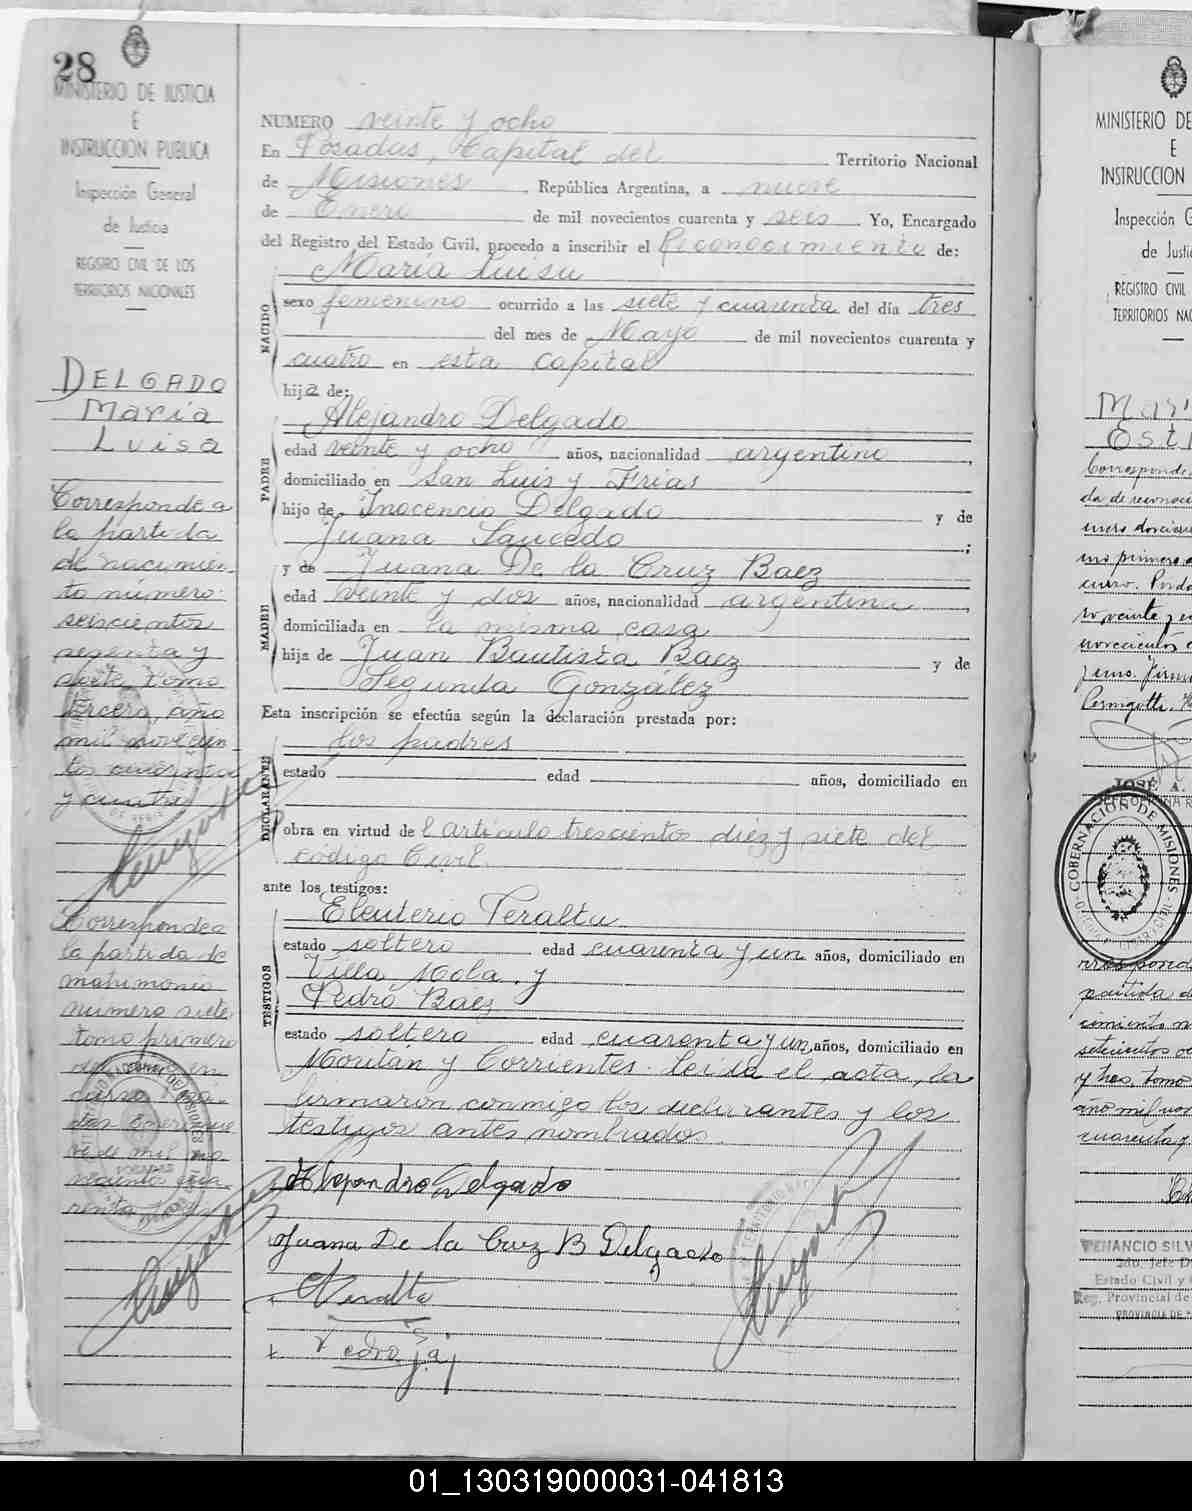 28
MINISTERIO DE JUSTICIA
E
INSTRUCCION PUBLICA
Inspección General
de Justicia
REGISTRO CIVIL DE LOS
TERRITORIOS NACIONALES
DELGADO
Maria
Luisa
Corresponde a
la partida
de nacimien-
to número
seiscientos
sesenta y
siete, tomo
tercero, año
mil novecien
tos cuarenta
y cuatro
Corresponde a
la partida de
matrimonio
número siete
tomo primero
curso
NUMERO veinte y ocho
En Posadas, Capital del Territorio Nacional
de Misiones, República Argentina, a nueve
de Enero de mil novecientos cuarenta y seis Yo, Encargado
del Registro del Estado Civil, procedo a inscribir el Reconocimiento de:
María Luisa
NACIDO
sexo femenino ocurrido a las siete y cuarenta del día tres
del mes de Mayo de mil novecientos cuarenta y
cuatro en esta capital
hija de:
Alejandro Delgado
PADRE
edad veinte y ocho años, nacionalidad argentino,
domiciliado en San Luis y Frias
hijo de Inocencio Delgado y de
Juana Saucedo;
y de Juana De la Cruz Baez
MADRE
edad veinte y dos años, nacionalidad argentina,
domiciliada en la misma casa
hija de Juan Bautista Baez y de
Segunda González
Esta inscripción se efectúa según la declaración prestada por:
los padres
DECLARANTE
estado edad años, domiciliado en
obra en virtud del artículo trescientos diez y siete del
código Civil.
ante los testigos:
Eleuterio Peralta
TESTIGOS
estado soltero edad cuarenta y un años, domiciliado en
Villa Mola y
Pedro Baez
estado soltero edad cuarenta y un, años, domiciliado en
Moritán y Corrientes. Leida el acta, la
firmaron conmigo los declarantes y los
testigos antes nombrados.
Alejandro Delgado
Juana De la Cruz B Delgado
Peralta
MINISTERIO DE
E
INSTRUCCION
Inspección G
de Justi
REGISTRO CIVIL
TERRITORIOS NAC
Mari
Corresponde
JOSÉ A.
GOBERNACION DE MISIONES
VENANCIO SILV
2do. Jefe D
Estado Civil y
Reg. Provincial de
PROVINCIA DE
01_130319000031-041813